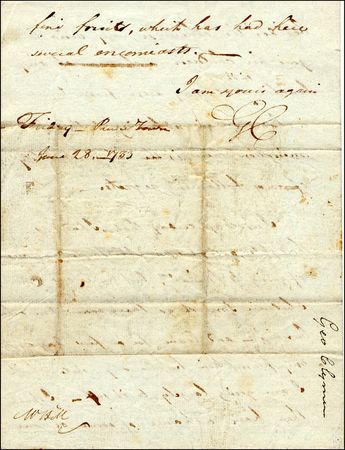 fine fruits, which has had here
several encomiasts. —
I am yours again
GC
Friday — Princeton
June 28. 1783
Geo Clymer